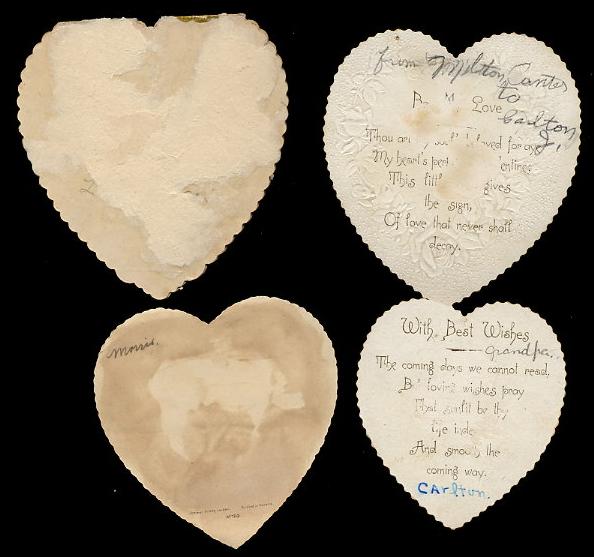 from Milton Canter
to
Carlton
J.
Love
Thou ar loved for aye
My heart's per entire;
This litt gives
the sign,
Of love that never shall
decay.
Morris.
With Best Wishes
Grandpa..
The coming days we cannot read,
B loving wishes pray
That sunlit be thy
life
And smooth the
coming way.
CArlton.